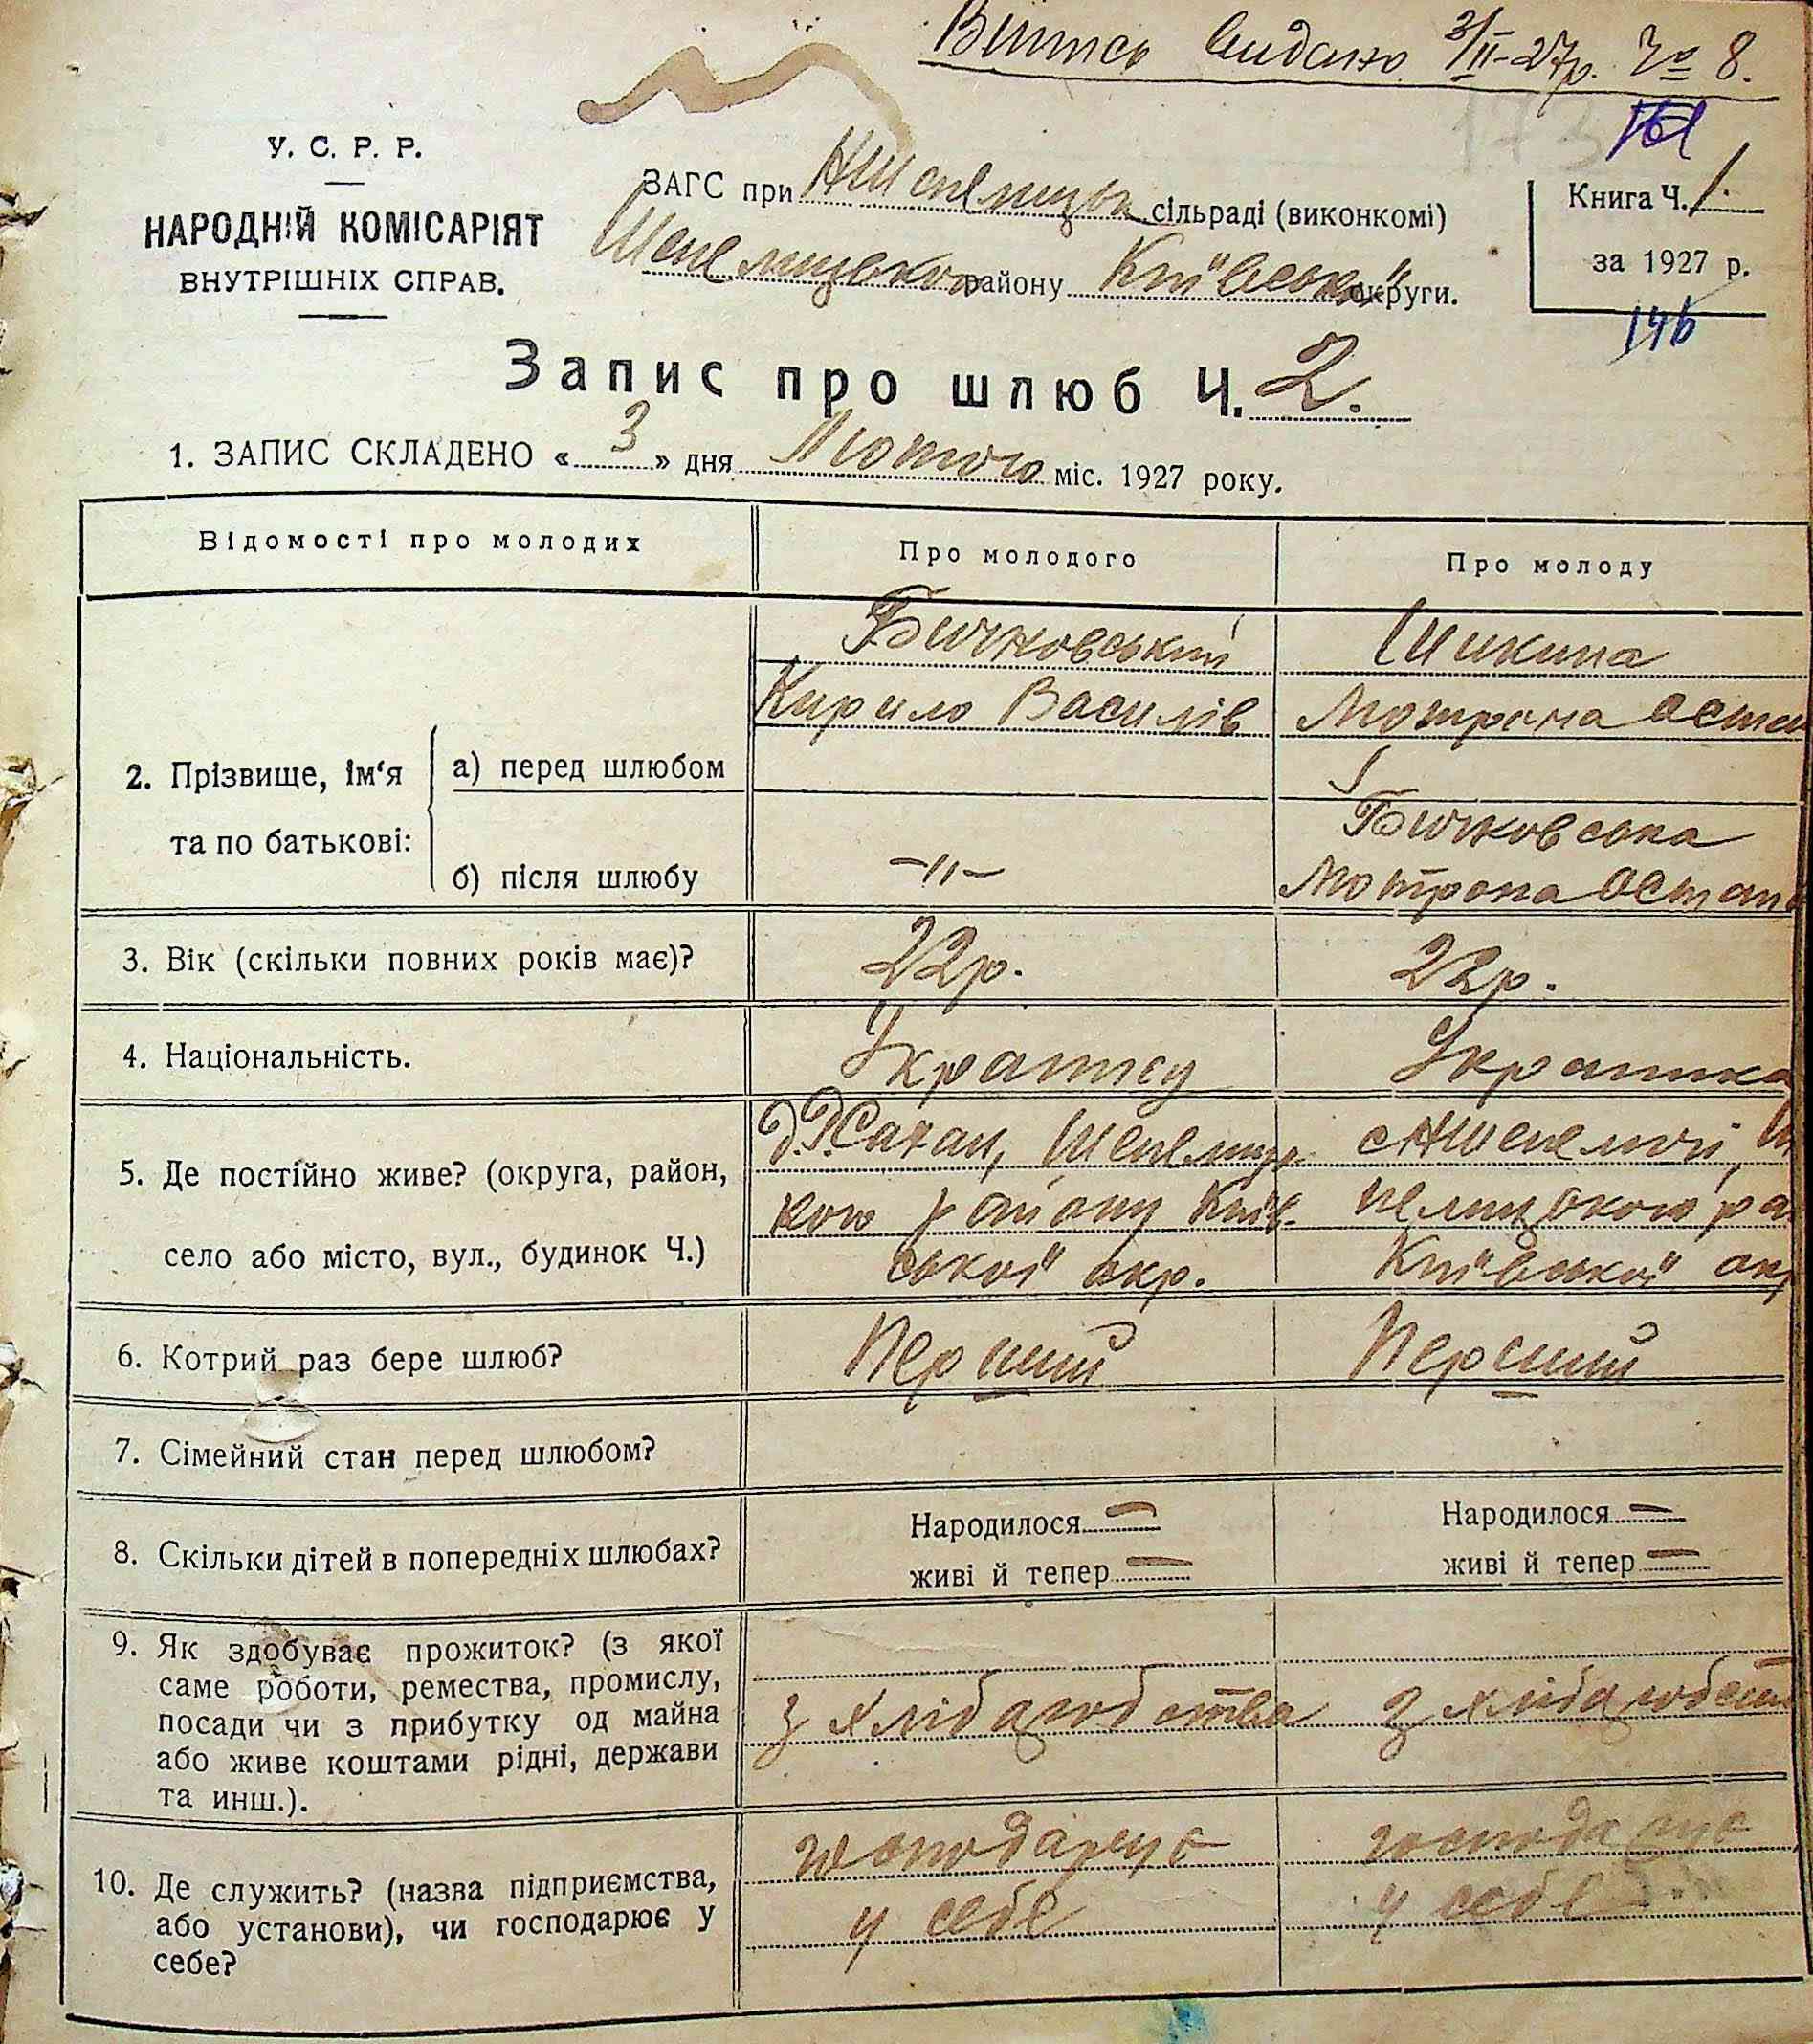 Виписъ видано 3/II-27р. № 8.
161
173
У. С. Р. Р.
НАРОДНІЙ КОМІСАРІЯТ
ВНУТРІШНІХ СПРАВ.
ЗАГС при НШепелицькій сільраді (виконкомі)
Шепелицького району Київської округи.
Книга Ч. 1.
за 1927 р.
146
Запис про шлюб Ч. 2.
1. ЗАПИС СКЛАДЕНО «3» дня Лютого міс. 1927 року.
Відомості про молодих
Про молодого
Про молоду
2. Прізвище, ім‘я та по батькові:
а) перед шлюбом
Бичковський
Кирило Василів
Шикина
Мотрона Оста
б) після шлюбу
-„-
Бичковська
Мотрона Остап
3. Вік (скільки повних років має)?
22р.
22р.
4. Національність.
Українец
Українка
5. Де постійно живе? (округа, район,
село або місто, вул., будинок Ч.)
Шепелиць-
кого району Київ-
ської окр.
с НШепеличі, Ше
пелицького ра
Київської окр
6. Котрий раз бере шлюб?
Перший
Перший
7. Сімейний стан перед шлюбом?
8. Скільки дітей в попередніх шлюбах?
Народилося —
живі й тепер —
Народилося —
живі й тепер —
9. Як здобуває прожиток? (з якої
саме роботи, ремества, промислу,
посади чи з прибутку од майна
або живе коштами рідні, держави
та инш.).
з хлібаробства
з хлібаробств
10. Де служить? (назва підприємства,
або установи), чи господарює у
себе?
господарює
у себе
господарює
у себе